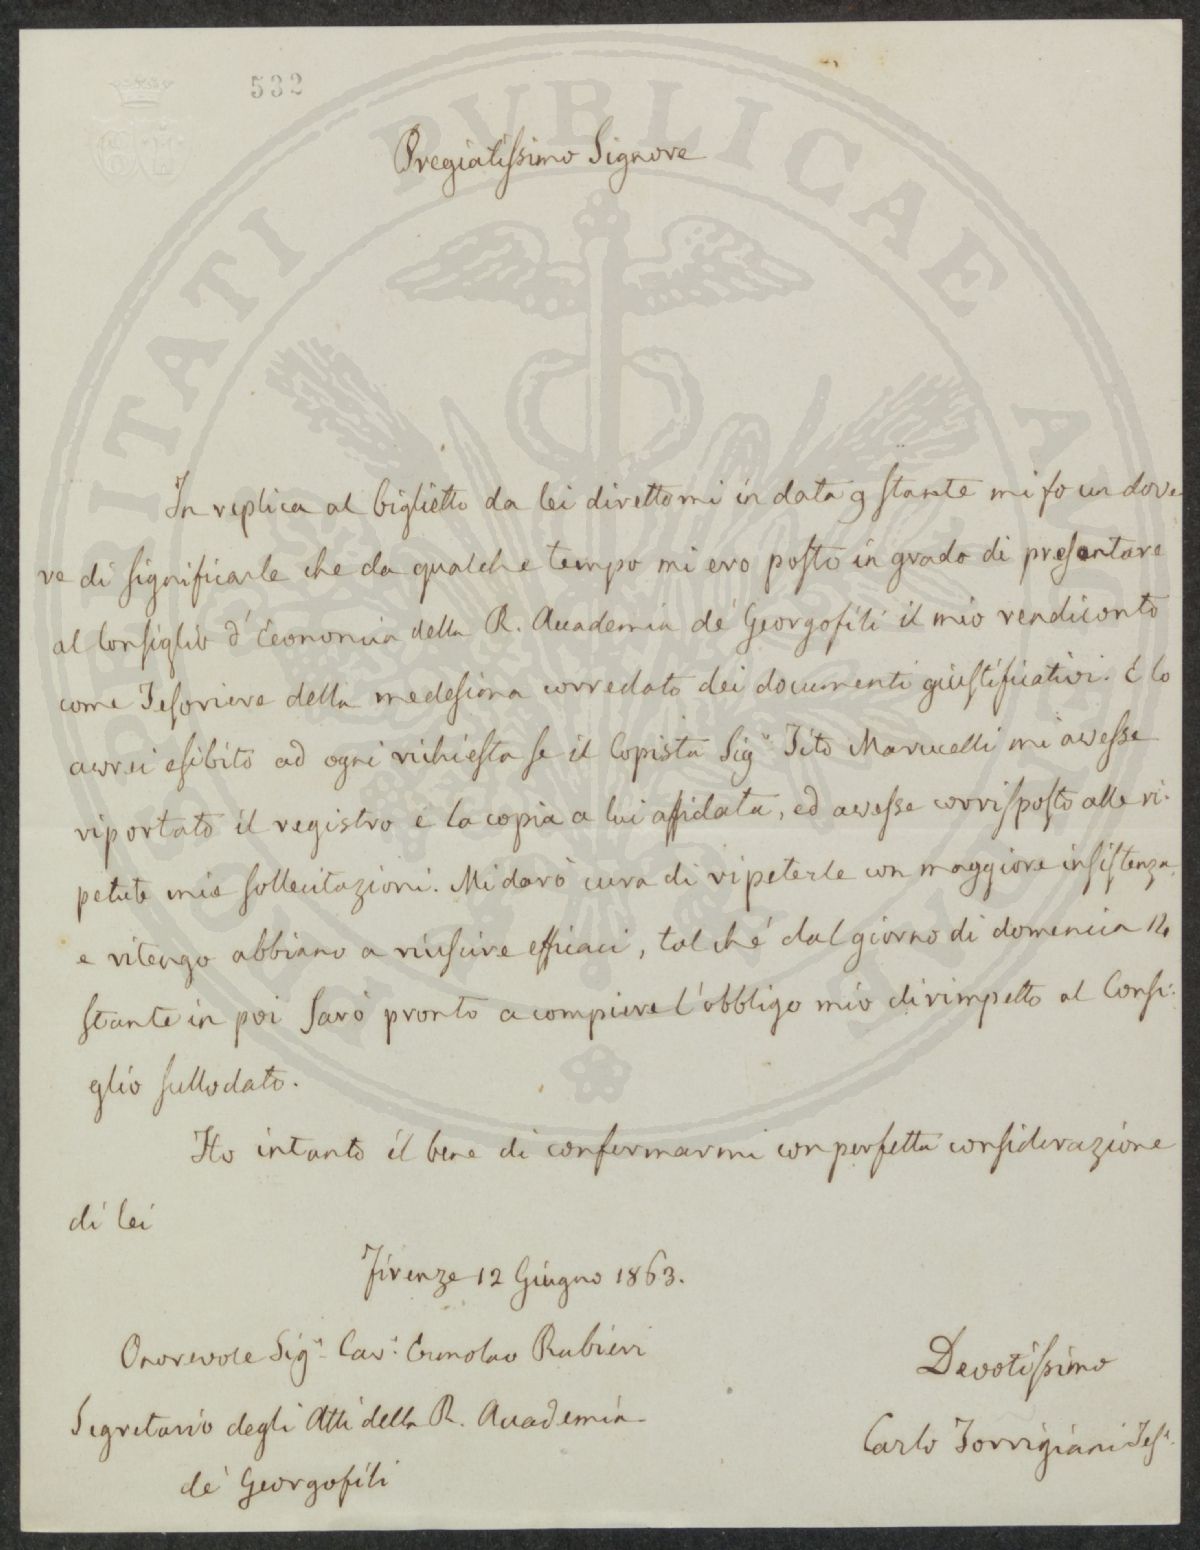 532
Pregiatissimo Signore
In replica al biglietto da lei direttomi in data 9 stante mi fo un dove
re di significarle che da qualche tempo mi ero posto in grado di presentare
al Consiglio d'Economia della R. Accademia de' Georgofili il mio rendiconto
come Tesoriere della medesima corredato dei documenti giustificativi. E lo
avrei esibito ad ogni richiesta se il Copista Sig.r Tito Marucelli mi avesse
riportato il registro e la copia a lui affidata, ed avesse corrisposto alle ri-
petute mie sollecitazioni. Mi darò cura di ripeterle con maggiore insistenza
e ritengo abbiano a riuscire efficaci, talché dal giorno di domenica 14
stante in poi sarò pronto a compiere l'obbligo mio dirimpetto al Consi-
glio sullodato.
Ho intanto il bene di confermarmi con perfetta considerazione
di lei
Firenze 12 Giugno 1863.
Onorevole Sig.r Cav.r Ermolao Rubieri
Segretario degli Atti della R. Accademia
de' Georgofili
Devotissimo
Carlo Torrigiani Tes.r
PROSPERITATI PUBLICAE AUGENDAE